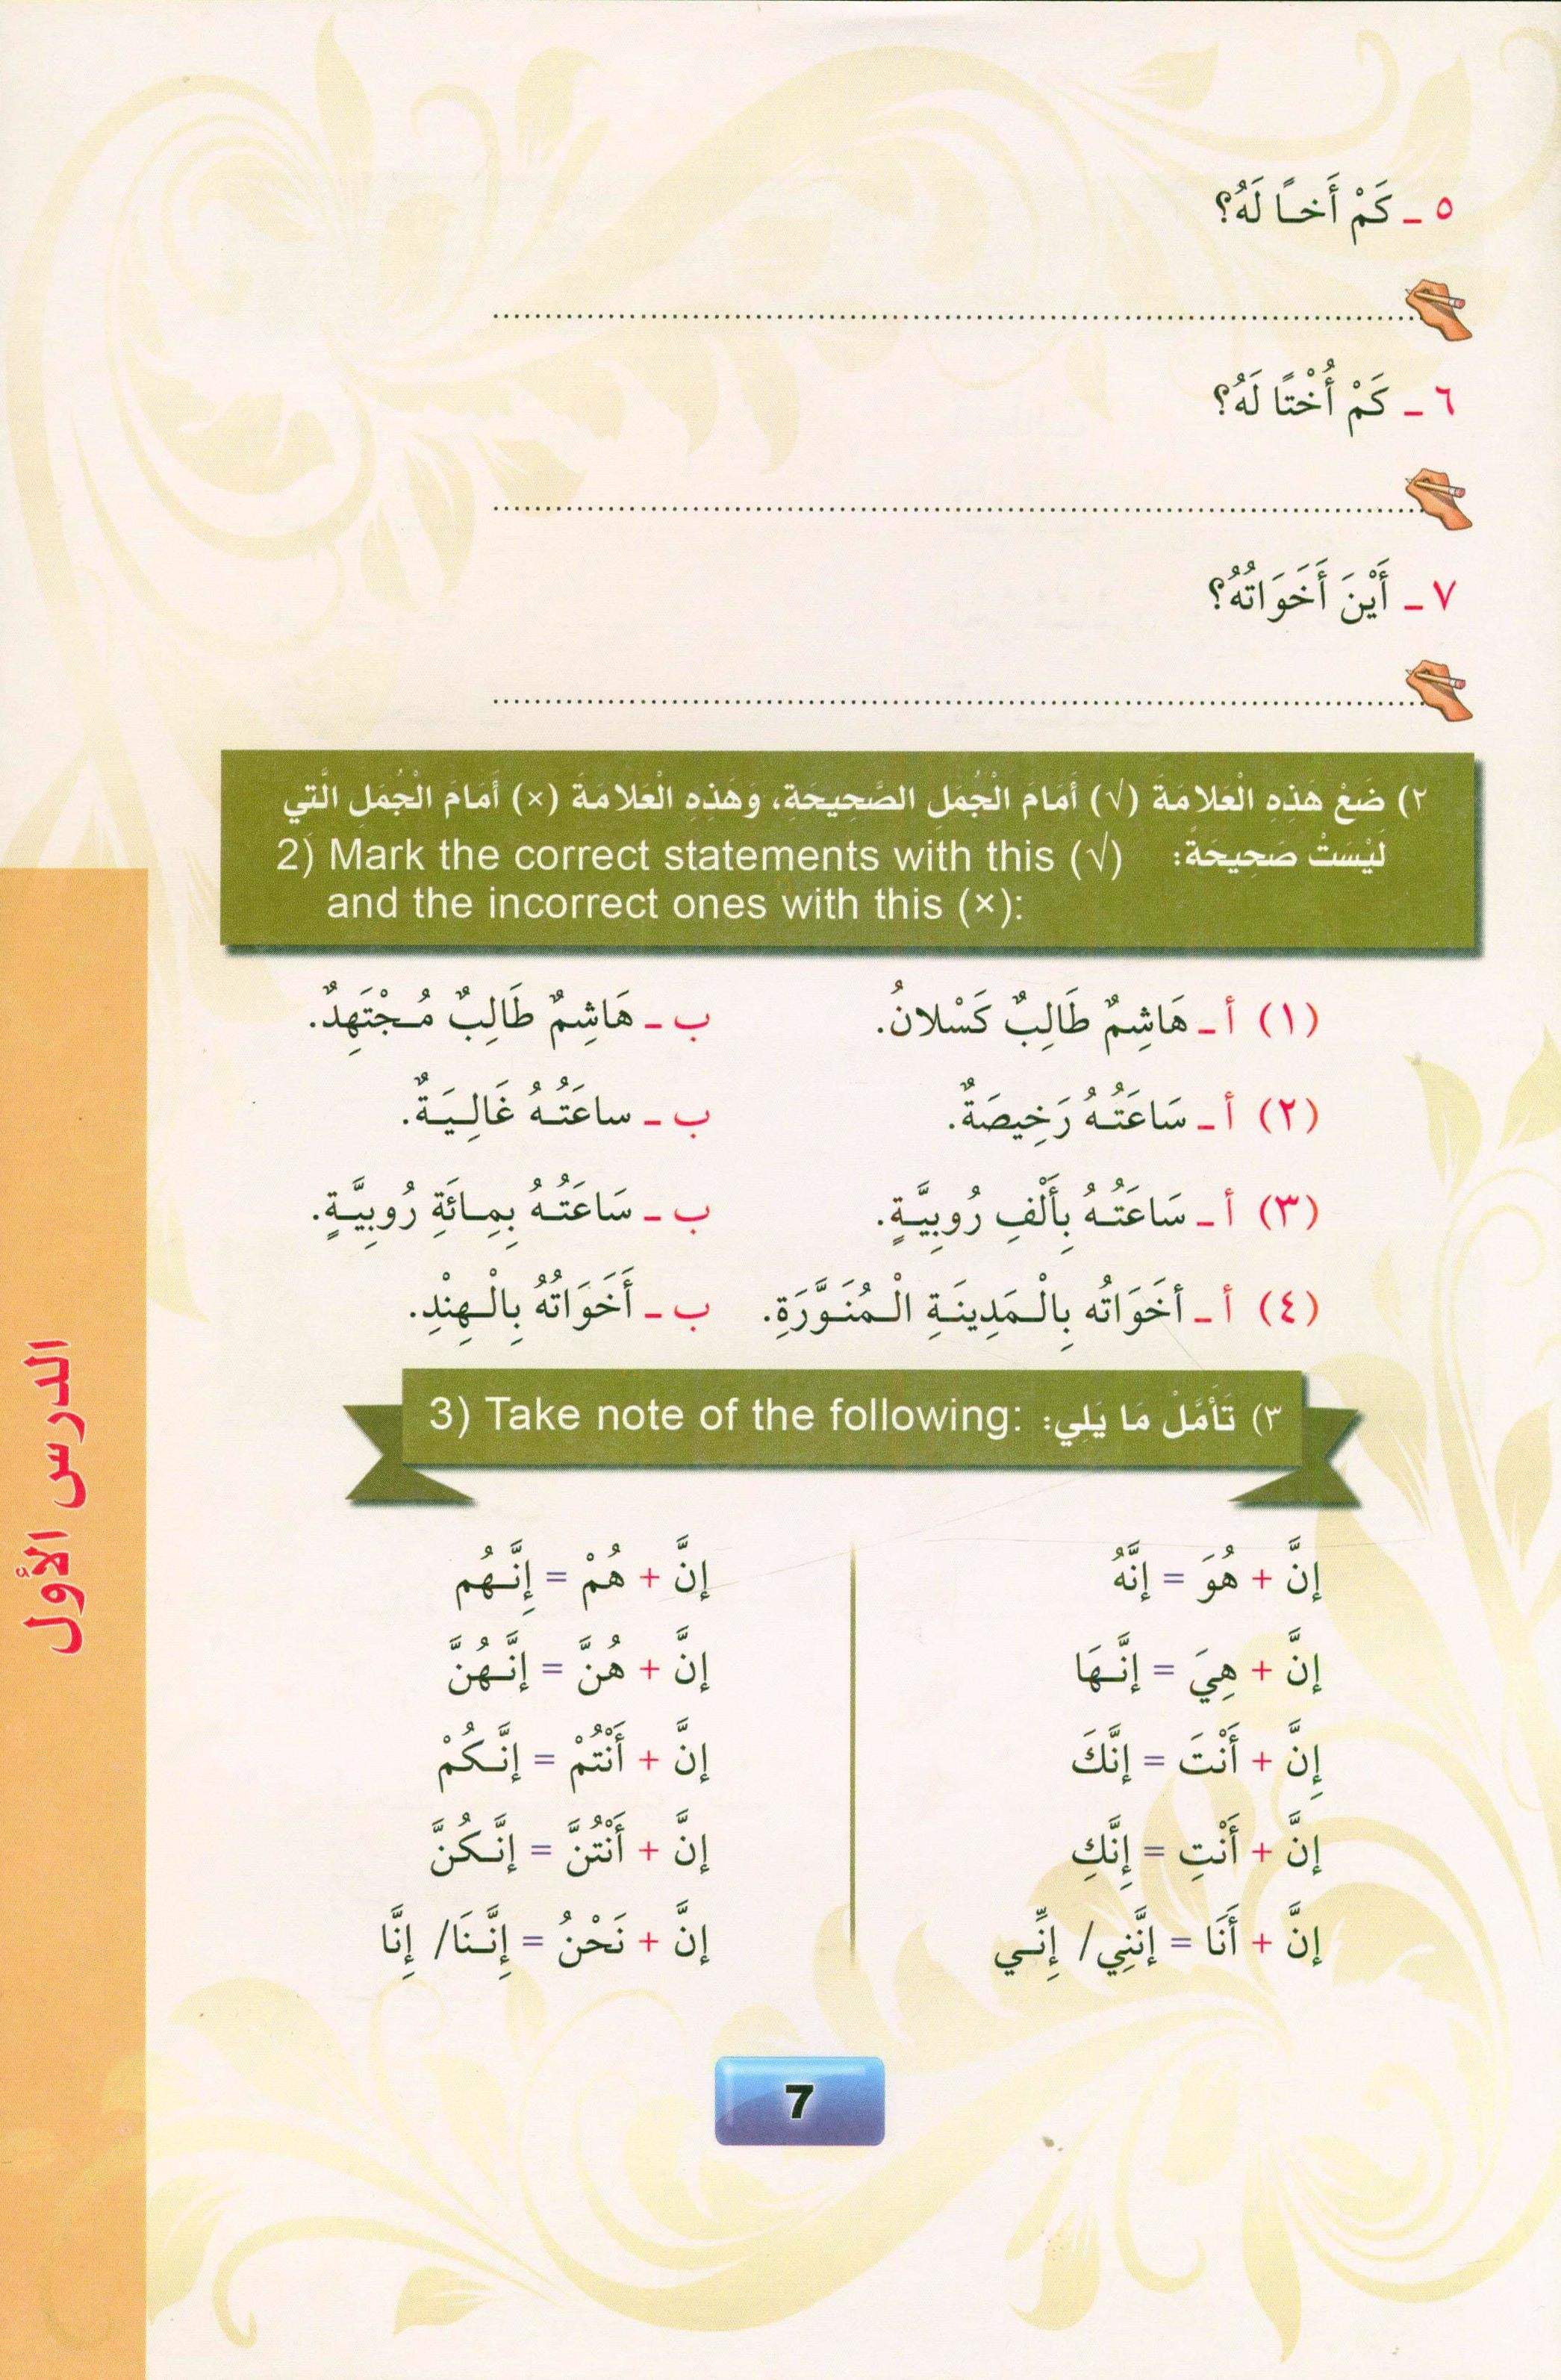 ٥ ـ كَمْ أَخـًا لَهُ؟
٦ ـ كَمْ أُخْتًا لَهُ؟
٧ ـ أَيْنَ أَخَوَاتُهُ؟
٢) ضَعْ هَذِهِ الْعَلامَةَ (√) أَمَامَ الْجُمَلِ الصَّحِيحَةِ، وَهَذِهِ الْعَلامَةَ (×) أَمَامَ الْجُمَلِ الَّتِي
لَيْسَتْ صَحِيحَةً: 2) Mark the correct statements with this (√)
and the incorrect ones with this (×):
(١) أ ـ هَاشِمٌ طَالِبٌ كَسْلانُ. ب ـ هَاشِمٌ طَالِبٌ مُـجْتَهِدٌ.
(٢) أ ـ سَاعَتُـهُ رَخِيصَةٌ. ب ـ ساعَتُـهُ غَالِـيَـةٌ.
(٣) أ ـ سَاعَتُـهُ بِأَلْفِ رُوبِيَّـةٍ. ب ـ سَاعَتُـهُ بِمِـائَةِ رُوبِيَّـةٍ.
(٤) أ ـ أخَوَاتُه بِالْـمَدِينَـةِ الْـمُنَـوَّرَةِ. ب ـ أَخَوَاتُهُ بِالْـهِنْدِ.
٣) تَأَمَّلْ مَا يَلِي: 3) Take note of the following:
إنَّ + هُوَ = إنَّهُ إنَّ + هُمْ = إِنَّـهُم
إنَّ + هِيَ = إنَّـهَا إنَّ + هُنَّ = إنَّـهُنَّ
إِنَّ + أَنْتَ = إنَّكَ إنَّ + أَنْتُمْ = إنَّـكُمْ
إنَّ + أَنْتِ = إِنَّكِ إنَّ + أَنْتُنَّ = إنَّـكُنَّ
إنَّ + أَنَا = إنَّنِي/ إِنِّـي إنَّ + نَحْنُ = إِنَّـنَا/ إِنَّا
الدرس الأول
7